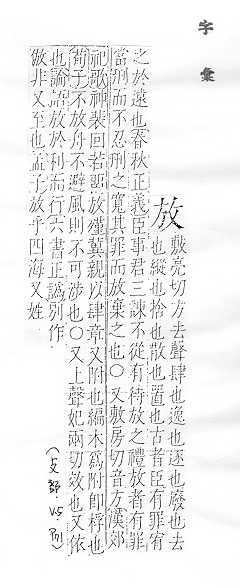 字彙
放 敷亮切方去聲肆也逸也逐也廢也去
也縱也捨也散也置也古者臣有罪宥
之於遠也春秋正義臣事君三諫不從有待放之禮放者有罪
當刑而不忍刑之寬其罪而放棄之也○又敷房切音方漢郊
祀歌神裴回若畱放殣冀親以肆章又附也編木爲附即桴也
荀子不放舟不避風則不可涉也○又上聲妃兩切效也又依
也論語放於利而行六書正譌別作
倣非又至也孟子放乎四海又姓